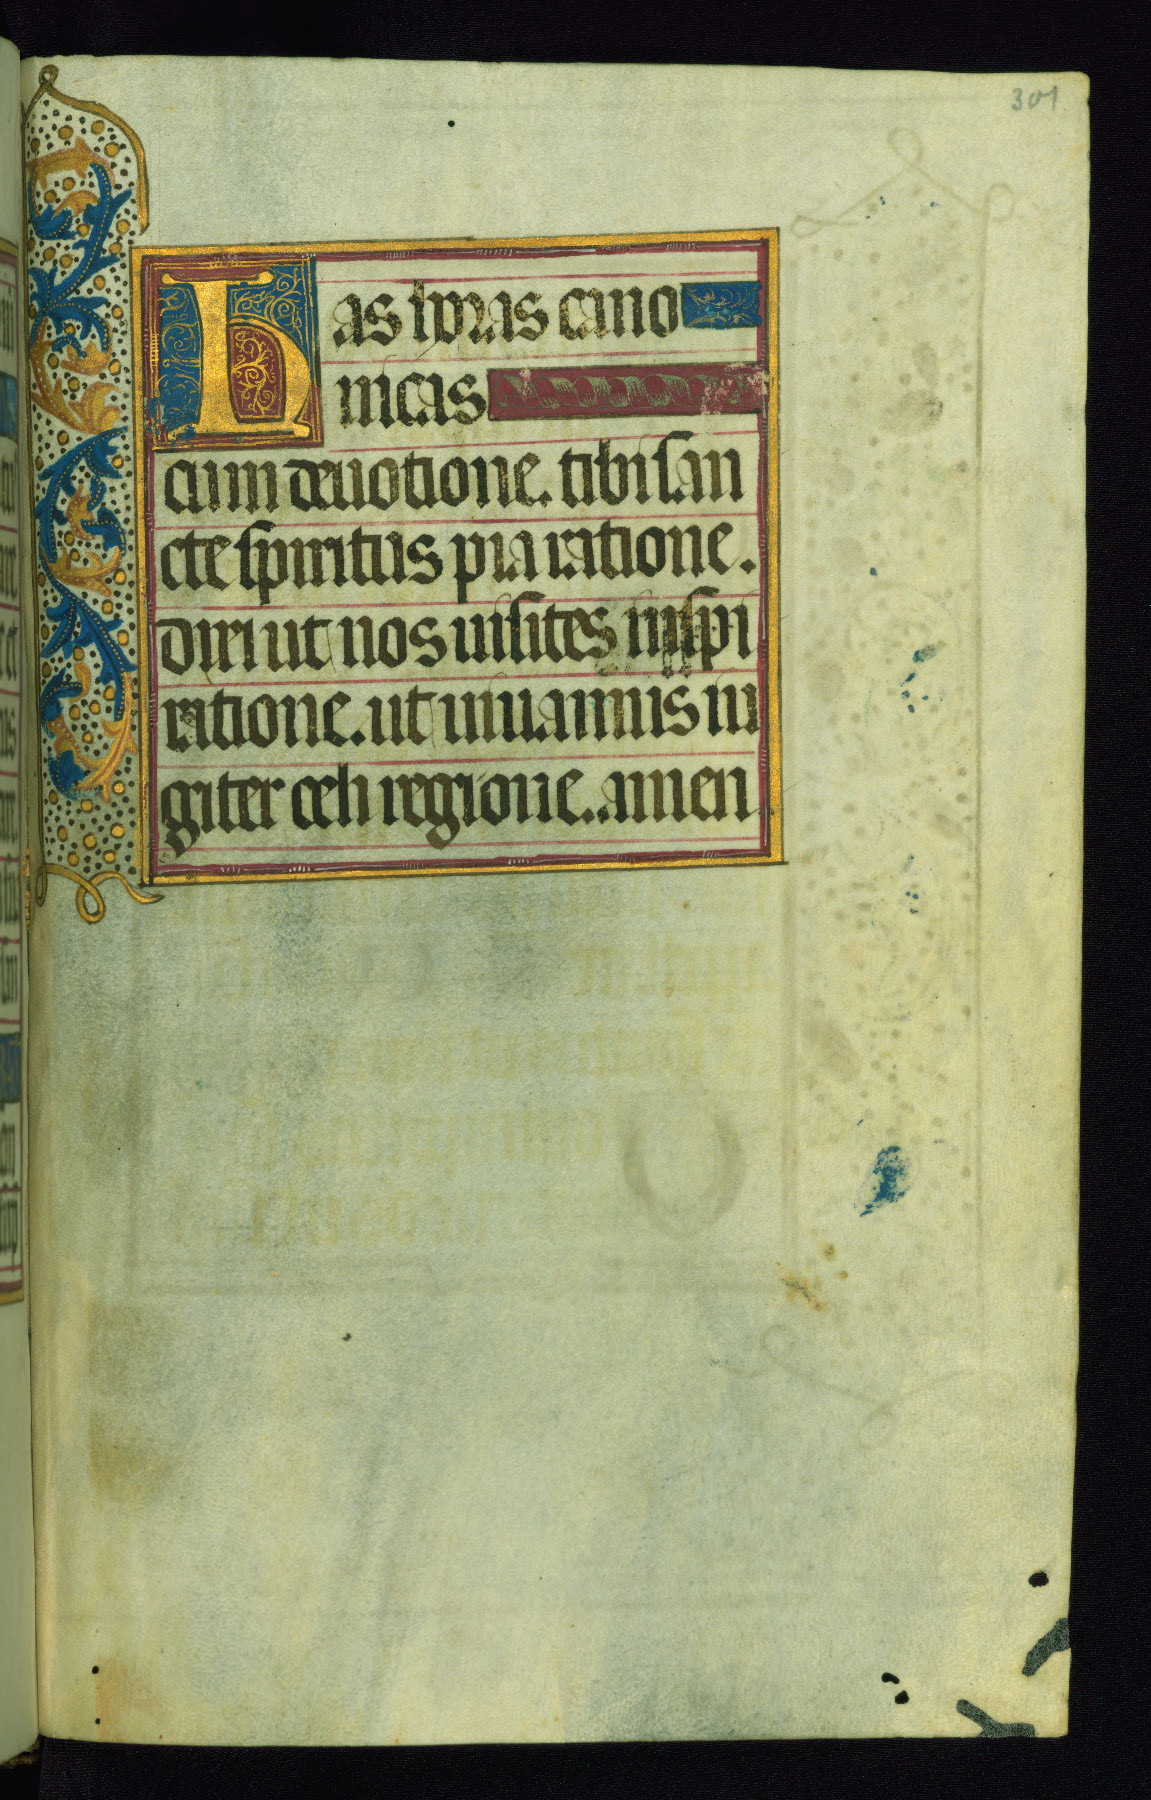 301
has horas cano
nicas
cum deuotione. tibi san
cte spiritus pia ratione.
dixi ut nos uisites inspi
ratione. ut uiuamus iu
giter celi regione. amen